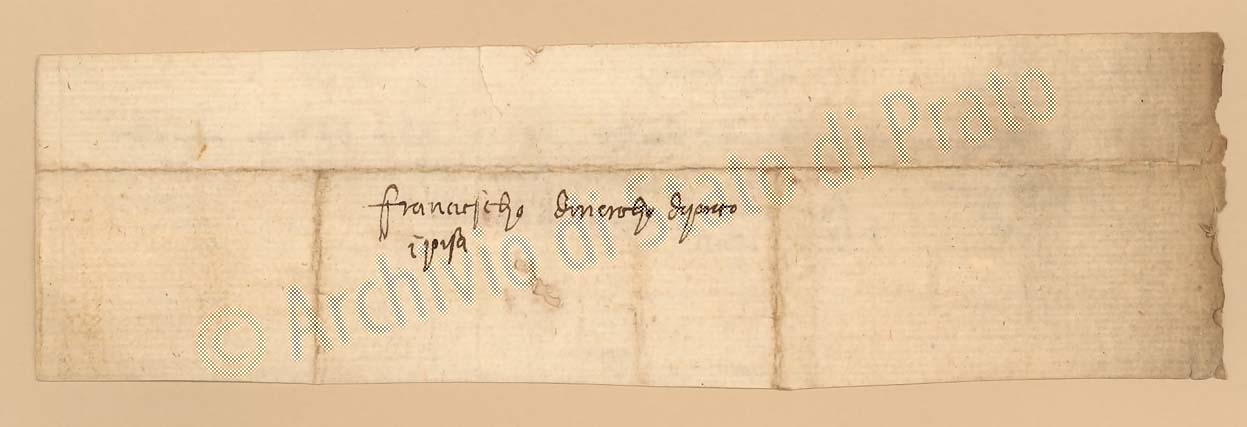 Franciescho di Marcho di Prato
i Pisa
© Archivio di Stato di Prato